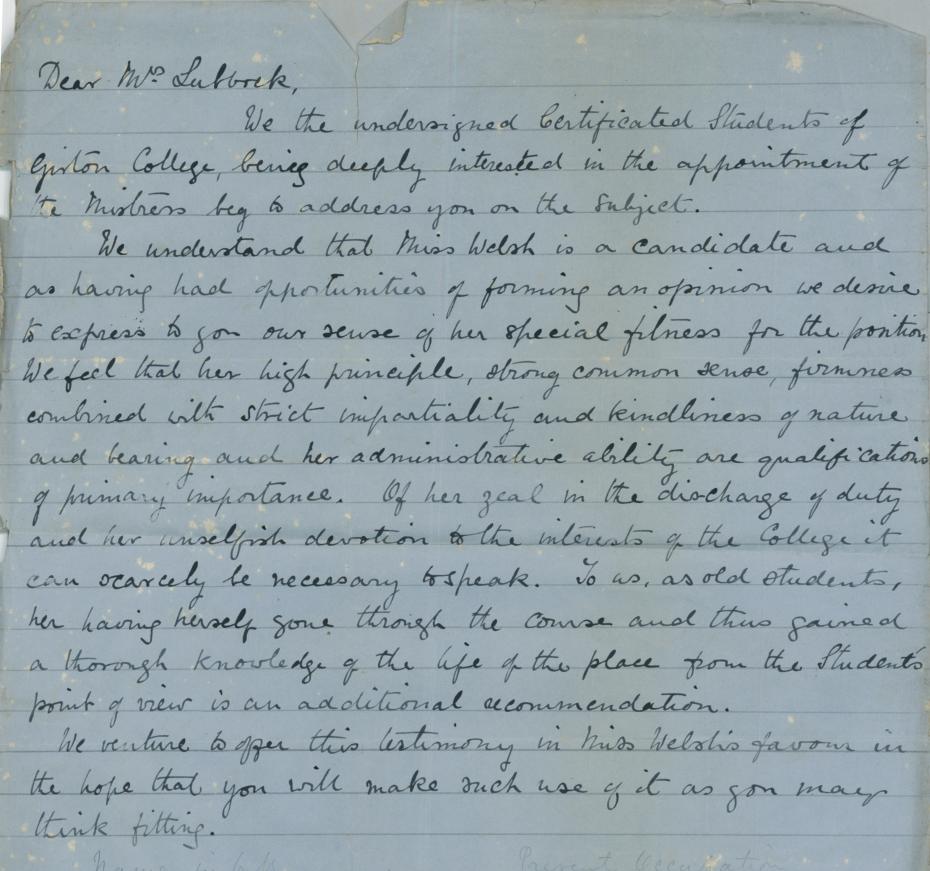 Dear Mrs Lubbock,
We the undersigned Certificated Students of
Girton College, being deeply interested in the appointment of
the Mistress beg to address you on the subject.
We understand that Miss Welsh is a candidate and
as having had opportunities of forming an opinion we desire
to express to you our sense of her special fitness for the position
We feel that her high principle, strong common sense, firmness
combined with strict impartiality and kindliness of nature
and bearing and her administrative ability are qualifications
of primary importance. Of her zeal in the discharge of duty
and her unselfish devotion to the interests of the College it
can scarcely be necessary to speak. To us, as old students,
her having herself gone through the course and thus gained
a thorough knowledge of the life of the place from the Students
point of view is an additional recommendation.
We venture to offer this testimony in Miss Welsh's favour in
the hope that you will make such use of it as you may
think fitting.
Present Occupation